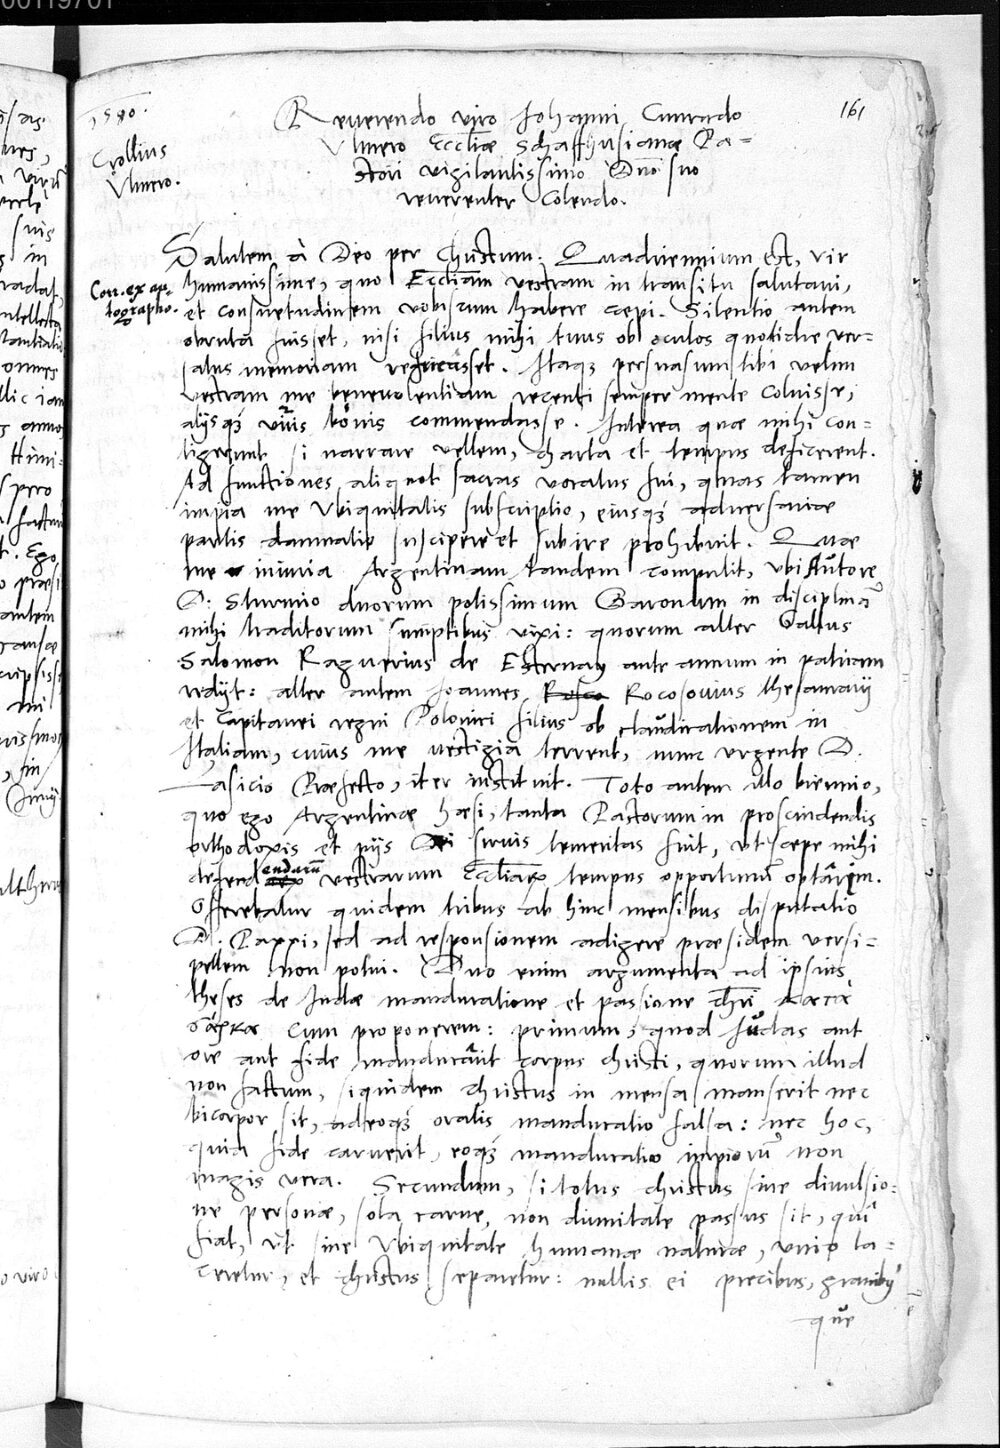 1580.
Crollius
Ulmero.
161
Reverendo viro Johanni Cunrado
Ulmero Eccliæ Schaffhusianæ Pa=
stori vigilantissimo Dno suo
reverenter Colendo.
Salutem à Deo per Christum. Quadriennium est, vir
Corr. ex au=
tographo.
humanissime, quo Eccliam vestram in transitu salutavi,
et consuetudinem vobiscum habere cepi. Silentio autem
obruta fuisset, nisi filius mihi tuus ob oculos quotidie ver=
satus memoriam refricasset. Itaq; persuasum tibi velim
vestram me benevolentiam recenti semper mente coluisse,
alijsq; viris bonis commendasse. Interea quæ mihi con=
tigerunt si narrare vellem, charta et tempus deficerent.
Ad functiones aliquot sacras vocatus fui, quas tamen
impia me Ubiquitatis subscriptio, eiusq; adversariæ
partis damnatio suscipere et subire prohibuit. Quæ
me inimia Argentinam tandem compulit, ubi Autore
D. Sturmio duorum polissimum Baronum in disciplinā
mihi traditorum sumptibus vixi: quorum alter Gallus
Salomon Raguerius de Esternay ante annum in patriam
redijt: alter autem Joannes Rocosovius thesaurarij
et Capitanei regni Polonici filius ob claudicationem in
Italiam, cuius me vestigia terrent, nunc urgente D.
Lasicio Præfecto, iter instituit. Toto autem illo biennio,
quo ego Argentinæ hæsi, tanta Pastorum in proscindendis
orthodoxis et pijs Dei servis temeritas fuit, ut sæpe mihi
defendendarū vestrarum Eccliarū tempus opportunū optārim.
Offerebatur quidem tribus ab hinc mensibus disputatio
D. Pappi, sed ad responsionem adigere præsidem versi=
pellem non potui. Duo enim argumenta ad ipsius
theses de Judæ manducatione et passione chri κατὰ
σάρκα cum proponerem: primum, quod Judas aut
ore aut fide manducavit corpus christi, quorum illud
non factum, siquidem christus in mensa manserit nec
bicorpor sit, adeoq; oralis manducatio falsa: nec hoc,
quia fide caruerit, eoq; manducatio impiorū non
magis vera. Secundum, si totus christus sine divulsio=
ne personæ, sola carne, non divinitate passus sit, qui
fiat, ut sine Ubiquitate humanæ naturæ, unio la=
ceretur, et christus separetur: nullis ei precibus, gravibus
que